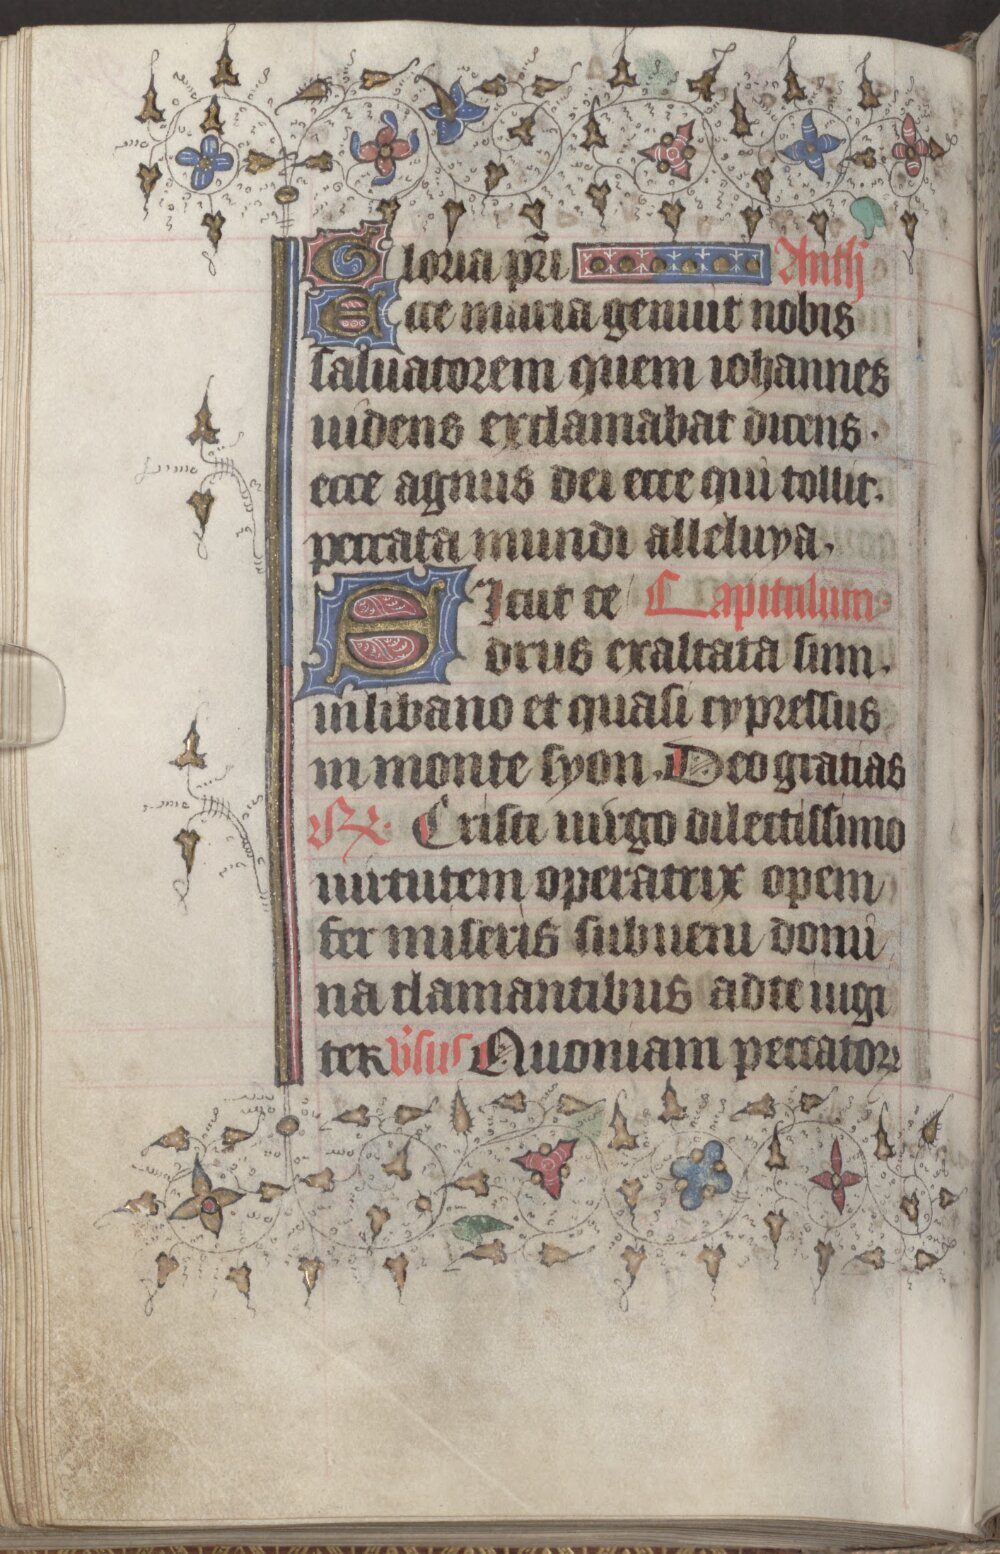 Gloria pri Anth
Ecce maria genuit nobis
saluatorem quem iohannes
uidens exclamabat dicens.
ecce agnus dei ecce qui tollit.
peccata mundi alleluya.
SIcut ce Capitulum
drus exaltata sum.
in libano et quasi cypressus
in monte syon. Deo gratias
Cristi uirgo dilectissima
uirtutem operatrix opem
fer miseris subueni domi
na clamantibus ad te iugi
ter vsus Quoniam peccator